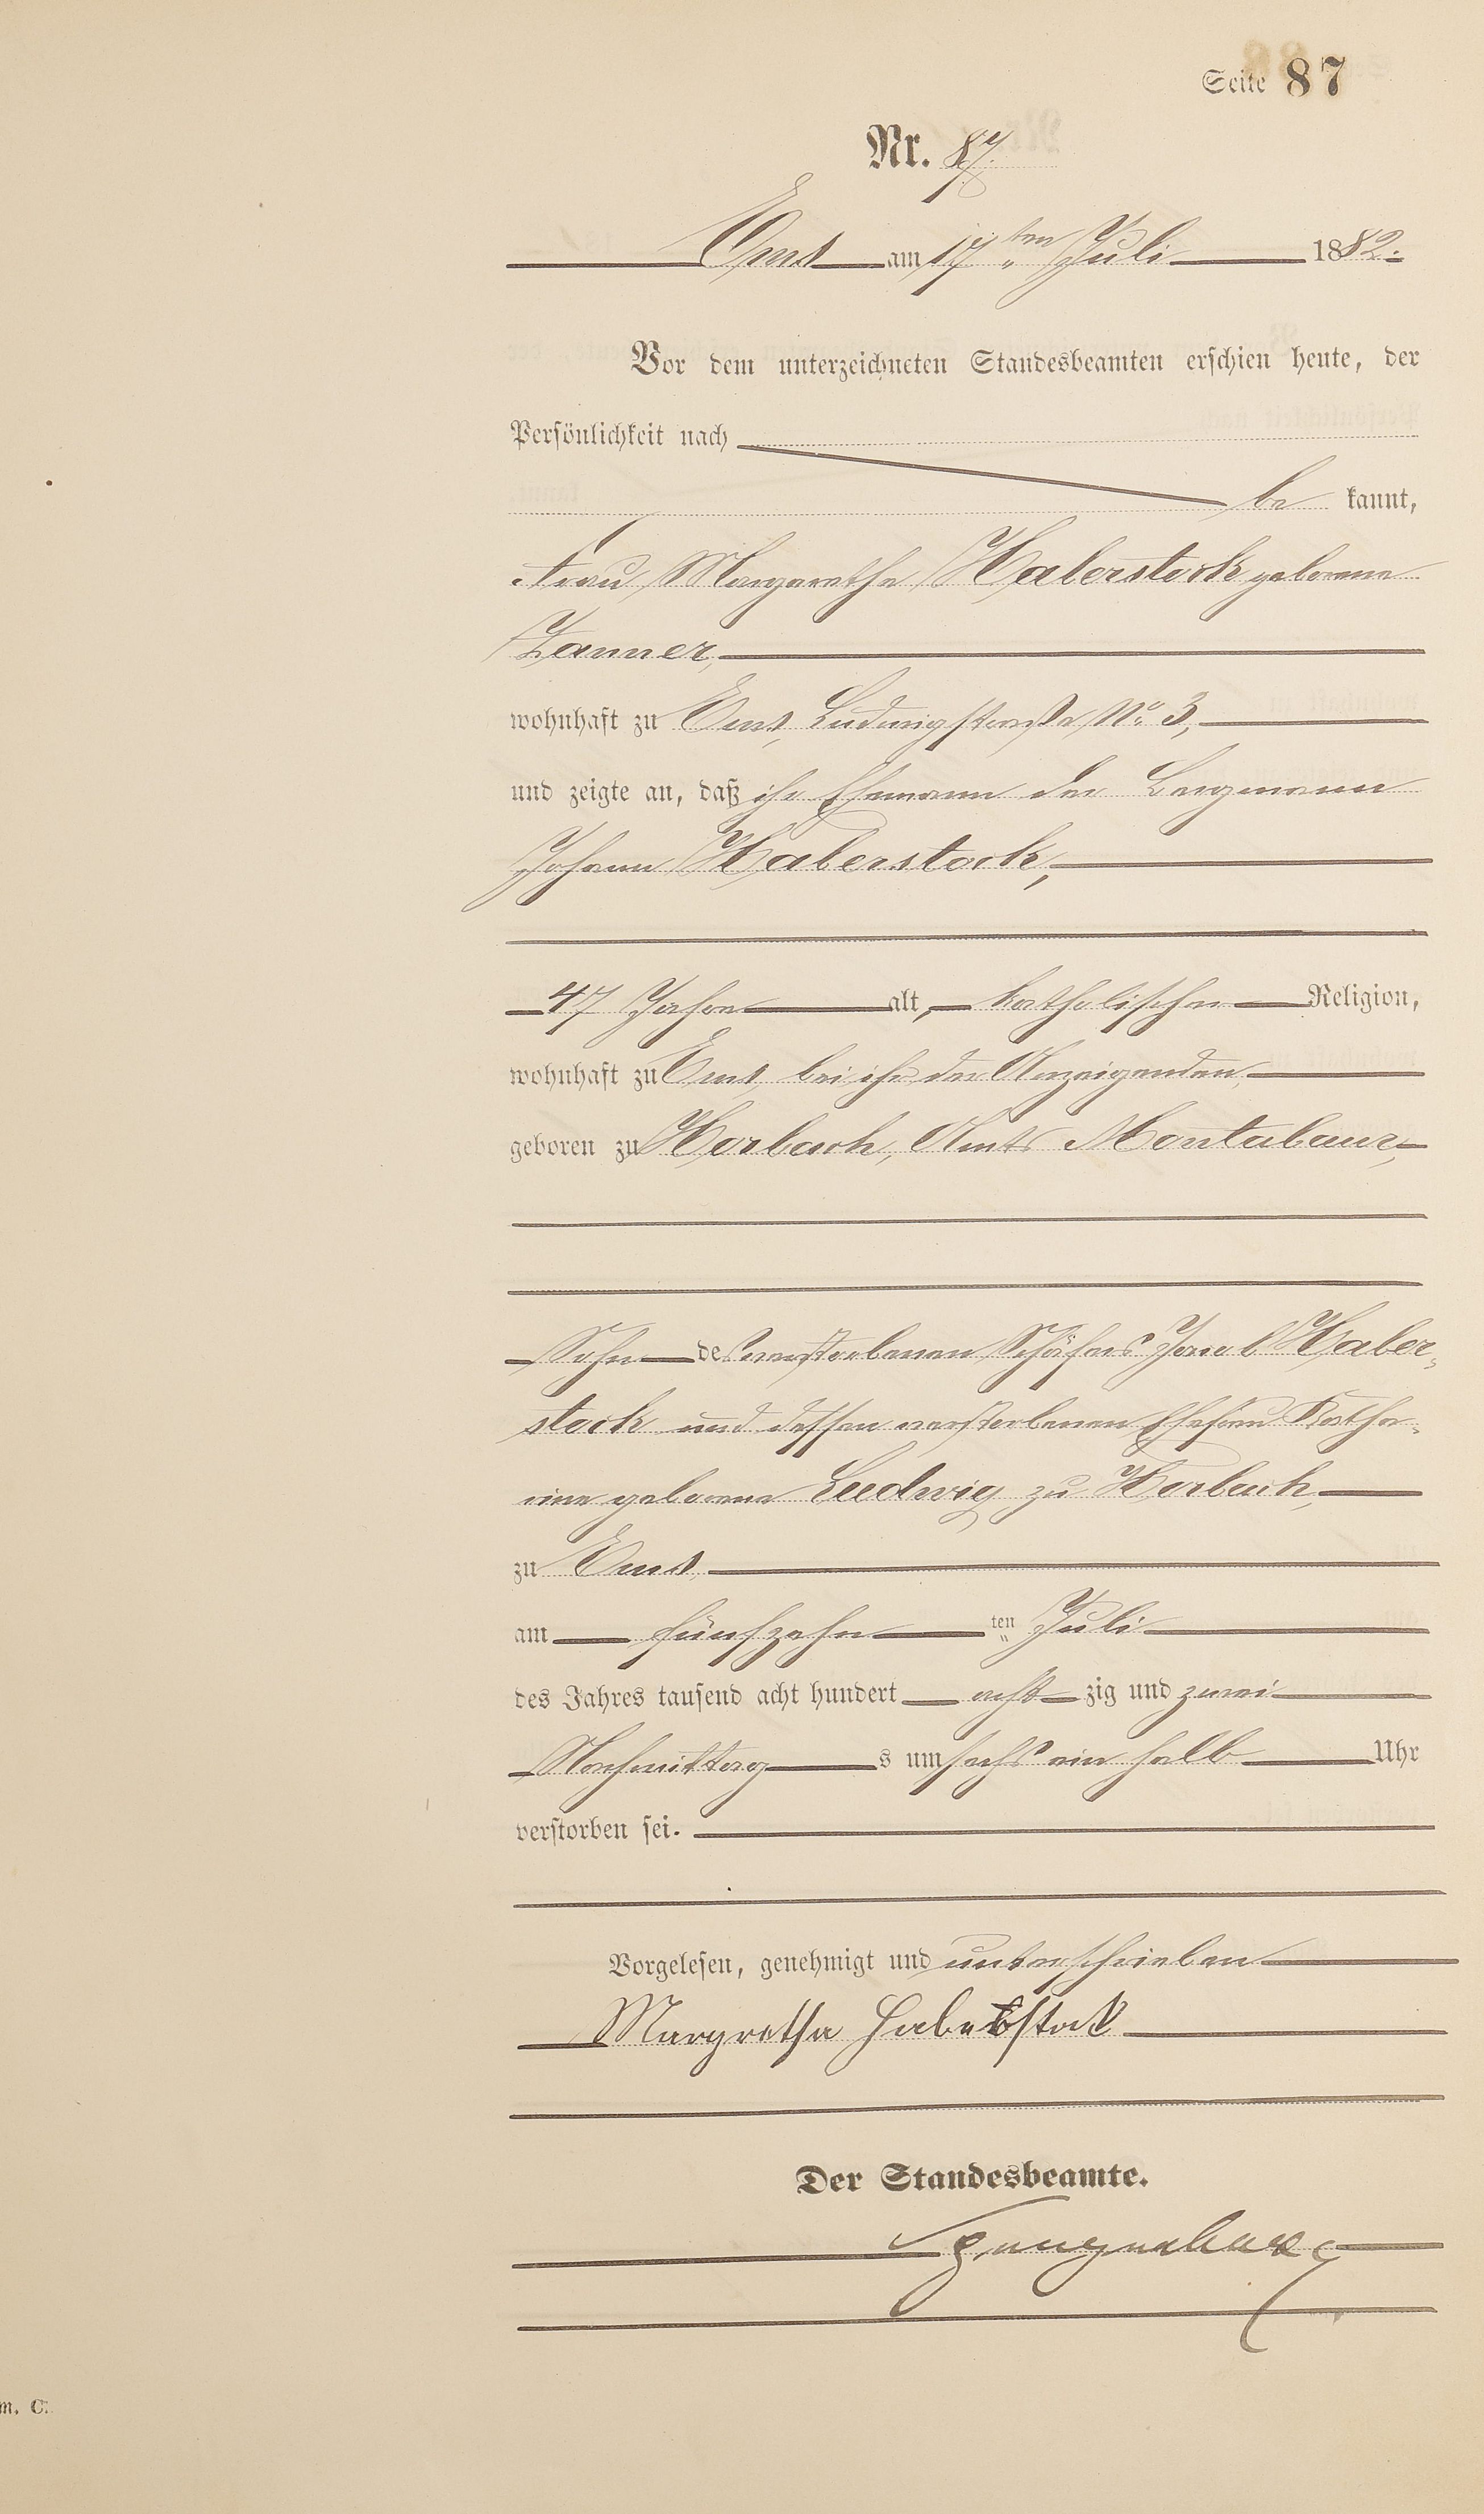 Seite 87
Nr. 87.
Ems am 17ten Juli 1882.
Vor dem unterzeichneten Standesbeamten erschien heute, der
Persönlichkeit nach
be kannt,
Frau Margarethe Haberstock geborene
Zanner,
wohnhaft zu Ems, Ludwigstraße No 3,
und zeigte an, daß ihr Ehemann der Bergmann
Johann Haberstock,
47 Jahre alt, katholischer Religion,
wohnhaft zu Ems, bei ihr der Anzeigenden,
geboren zu Horbach, Amts Montabaur,
Sohn des verstorbenen Schäfers Jacob Haber-
stock und dessen verstorbenen Ehefrau Katha-
rine geborene Ludwig zu Horbach,
zu Ems,
am fünfzehn ten Juli
des Jahres tausend acht hundert acht zig und zwei
Nachmittag s um sechs ein halb Uhr
verstorben sei.
Vorgelesen, genehmigt und unterschrieben
Margretha Haberstok
Der Standesbeamte.
m. C.